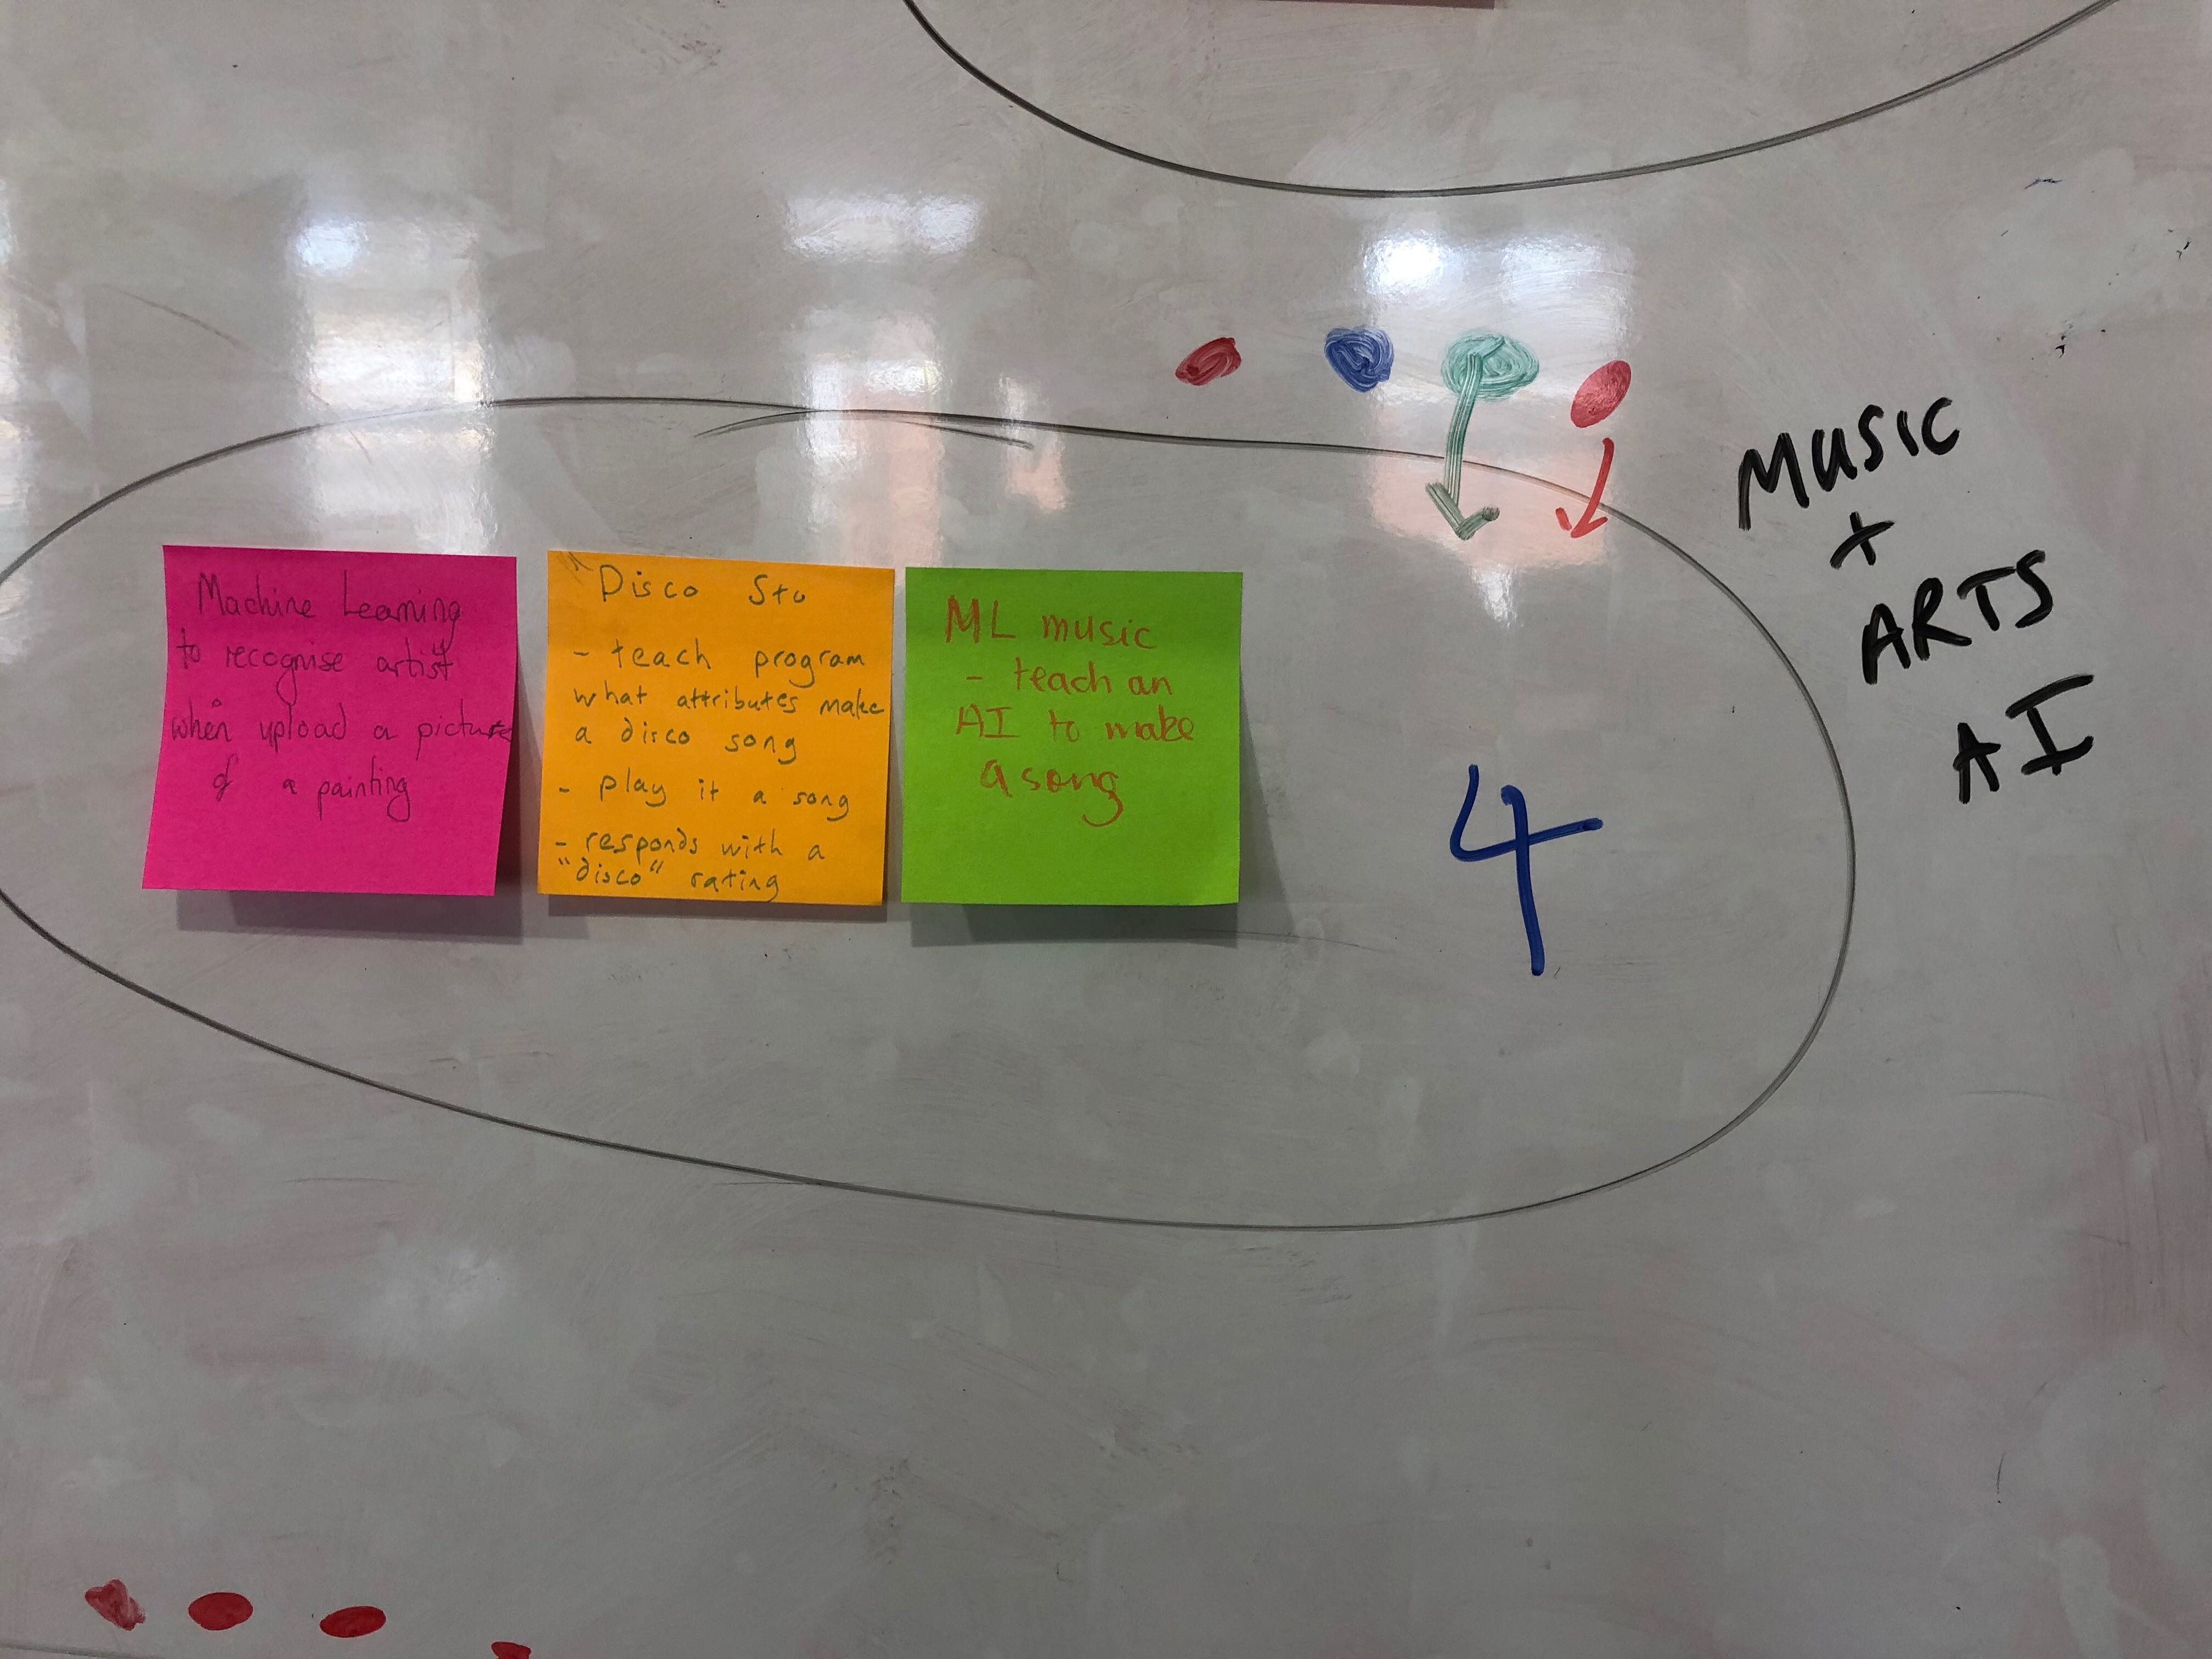 Machine Learning
to recognise artist
when upload a picture
of a painting
Disco Stu
- teach program
what attributes make
a disco song
- play it a song
- responds with a
"disco" rating
ML music
- teach an
AI to make
a song
4
MUSIC
+
ARTS
AI